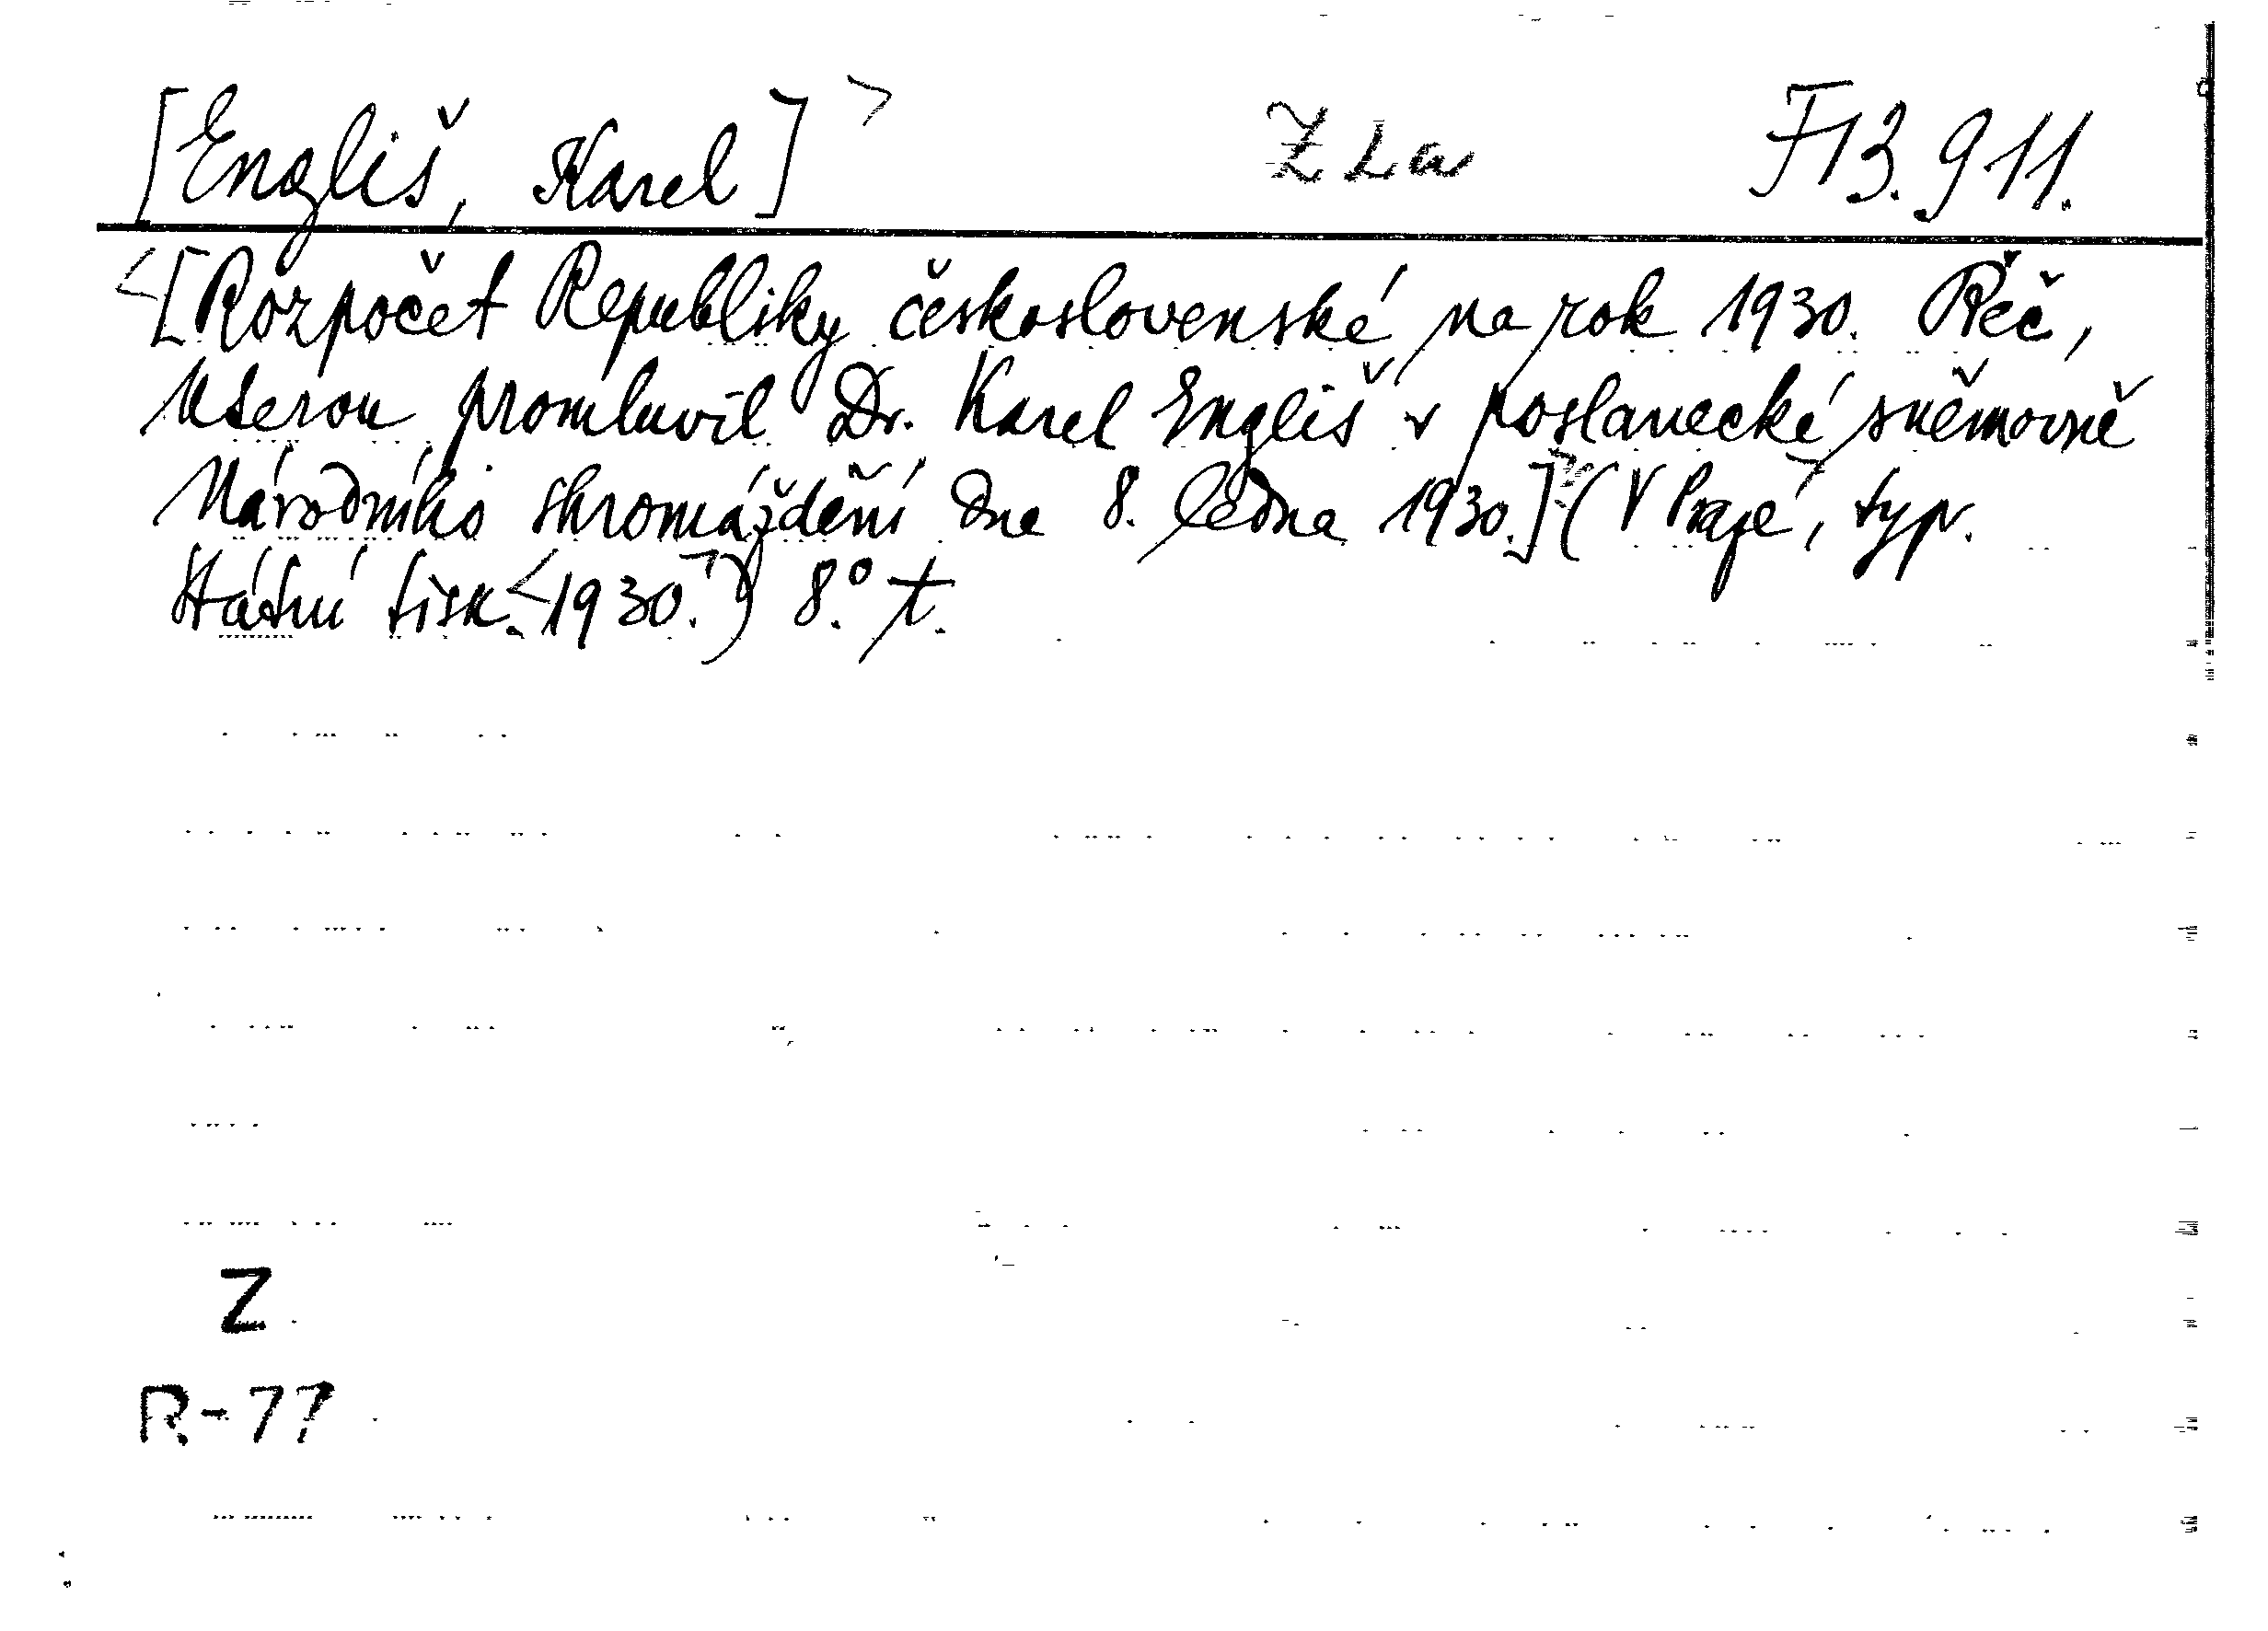 [Engliš, Karel] > Z La F 13.911.
<[Rozpočet Republiky československé na rok 1930. Řeč,
kterou promluvil Dr. Karel Engliš v poslanecké sněmovně
Národního shromáždění dne 8. ledna 1930.] (V Praze, typ.
Státní tisk. <1930.>) 8.° t.
Z
R-77